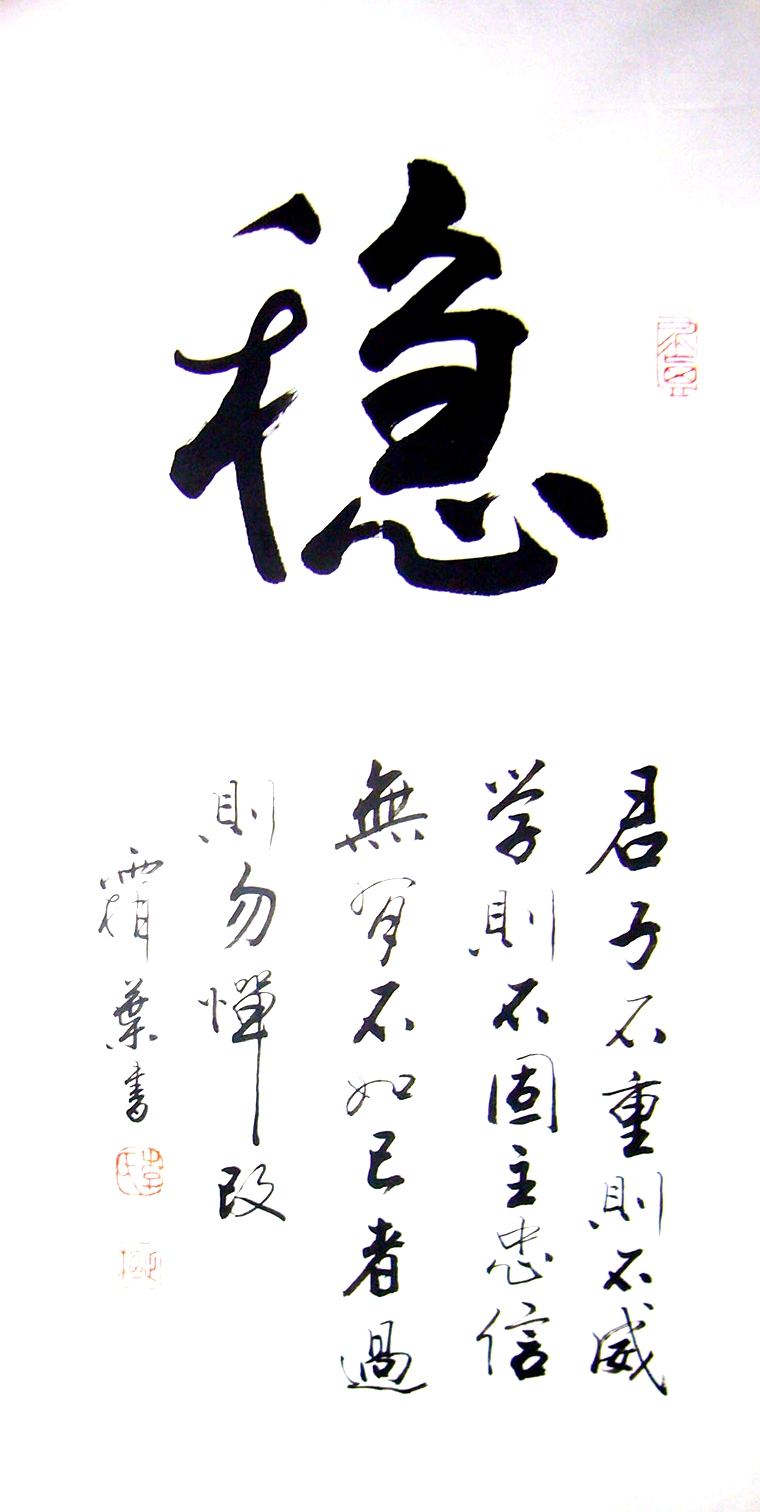 稳
君子不重則不威
学則不固主忠信
無友不如己者過
則勿憚改
霜葉書